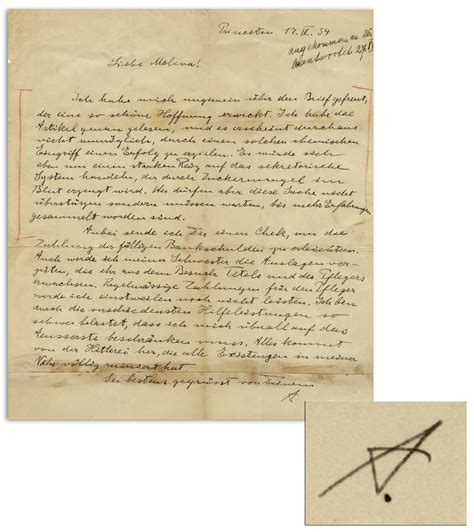 Princeton. 12. IV. 34
angekommen an 26
beantwortet 27/IV
Liebe Mileva!
Ich habe mich ungemein über den Brief gefreut,
der eine so schöne Hoffnung erweckt. Ich habe das
Artikel genau gelesen, und es erscheint durchaus
nicht unmöglich, durch einen solchen chemischen
Eingriff einen Erfolg zu erzielen. Es würde sich
eben um einen starken Reiz auf das sekretorische
System handeln, der durch Zuckermangel im
Blut erzeugt wird. Wir dürfen aber diese Sache nicht
überstürzen sondern müssen warten, bis mehr Erfahrungen
gesammelt worden sind.
Anbei sende ich Dir einen Chek, um die
Zahlung der fälligen Bankschulden zu erleichtern.
Auch werde ich meiner Schwester die Auslagen ver-
güten, die ihr aus dem Besuch Tetels und des Pflegers
erwachsen. Regelmässige Zahlungen für den Pfleger
werde ich einstweilen noch nicht leisten. Ich bin
durch die verschiedensten Hilfeleistungen so
schwer belastet, dass ich mich überall auf das
Äusserste beschränken muss. Alles kommt
von der Hitlerei her, die alle Existenzen in meiner
Nähe völlig ruiniert hat
Sei bestens gegrüsst von Deinem
A.
A.